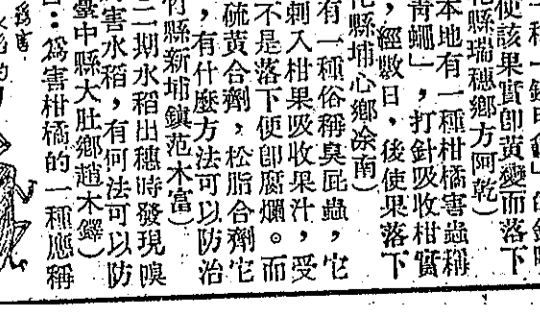 使該果實卽黃變而落下
縣瑞穗鄉方阿乾)
本地有一種柑橘害蟲稱
靑蠅」,打針吸收柑實
,經數日,後使果落下
化縣埔心鄉涂南)
有一種俗稱臭屁蟲,它
刺入柑果吸收果汁,受
不是落下便卽腐爛。而
硫黃合劑,松脂合劑它
,有什麼方法可以防治
竹縣新埔鎭范木富)
二期水稻出穗時發現嗅
害水稻,有何法可以防
臺中縣大肚鄉趙木鐸)
:爲害柑橘的一種應稱